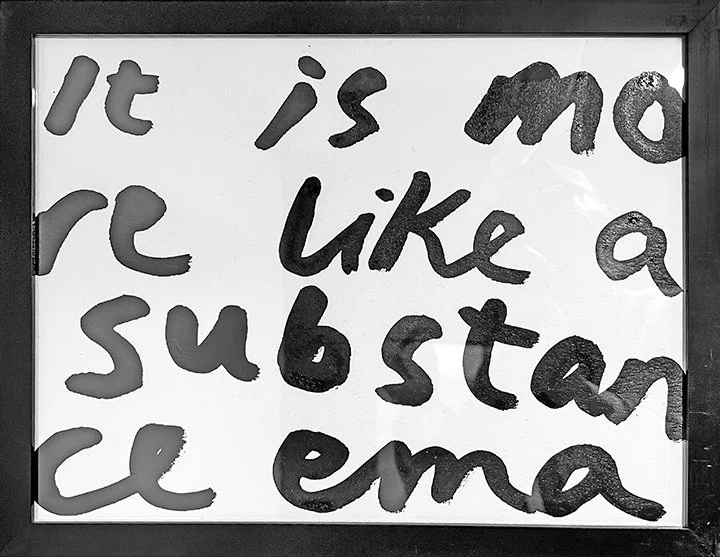 It is mo
re like a
substan
ce ema